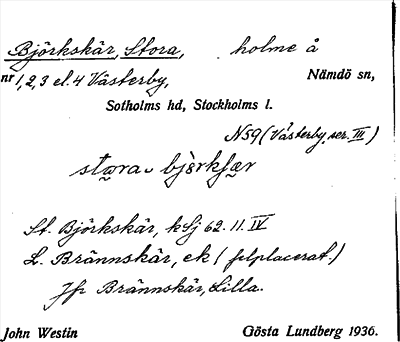 Björkskär, Stora, holme å
nr 1, 2, 3 el. 4 Västerby, Nämdö sn,
Sotholms hd, Stockholms l.
N59 (Västerby, ser. III)
stωra ᴗ bjèrkʃær
St. Björkskär, kSj 62. 11. IV
L. Brännskär, ek (felplacerat.)
Jfr Brännskär, Lilla.
John Westin Gösta Lundberg 1936.